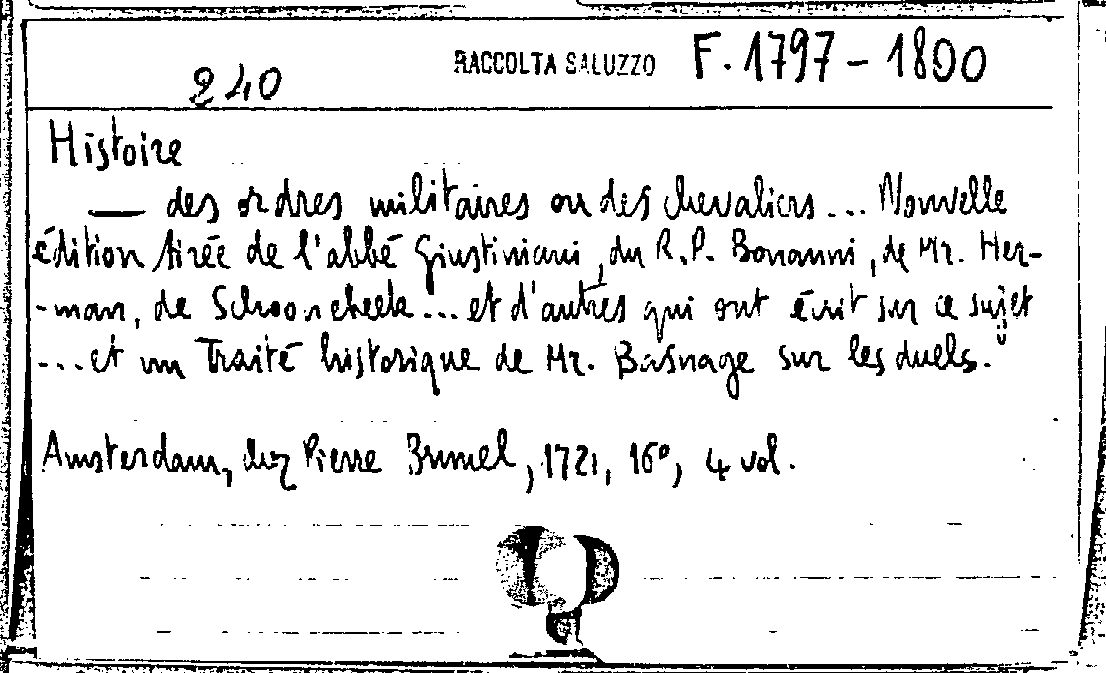 240 RACCOLTA SALUZZO F. 1797 - 1800
Histoire
— des ordres militaires ou des chevaliers... Nouvelle
édition tirée de l'abbé Giustiniani, du R.P. Bonanni, de Mr. Her-
-man, de Schoonebeek... et d'autres qui ont écrit sur ce sujet
... et un Traité historique de Mr. Basnage sur les duels.
Amsterdam, chez Pierre Brunel, 1721, 16°, 4 vol.